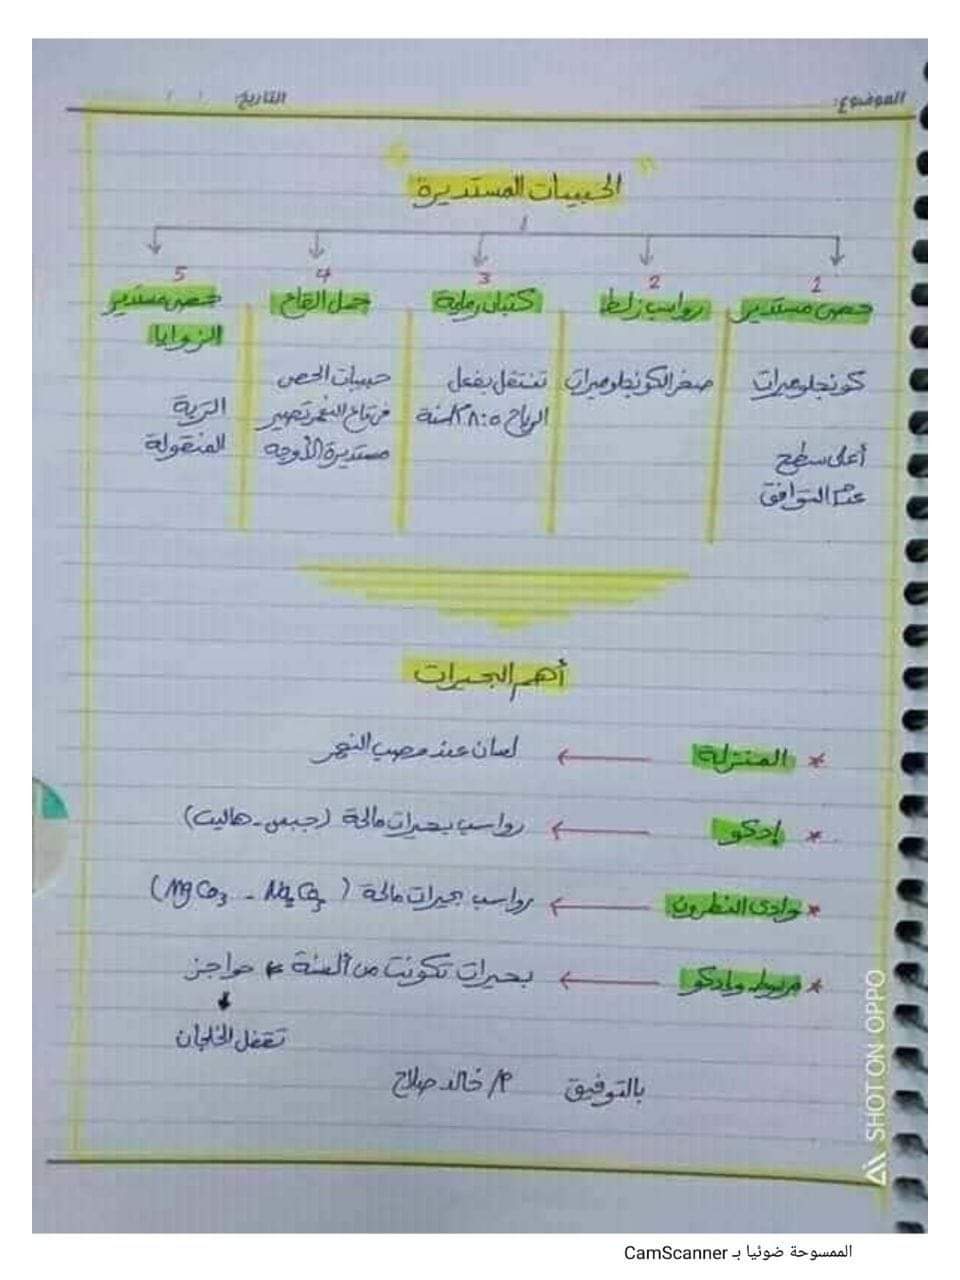 الموضوع:
التاريخ: / /
" الحبيبات المستديرة "
1
حصى مستدير
كونجلوميرات
أعلى سطح
عدم التوافق
2
رواسب زلط
صخر الكونجلوميرات
3
كثبان رملية
تنتقل بفعل
الرياح 5:8 م/سنة
4
حمل القاع
حبيبات الحصى
فى قاع النهر تصير
مستديرة الأوجه
5
حصى مستدير
الزوايا
التربة
المنقولة
أهم البحيرات
* المنزلة ← لسان عند مصب النهر
* إدكو ← رواسب بحيرات مالحة (جبس - هاليت)
* وادى النطرون ← رواسب بحيرات مالحة (MgCo3 - Na2Co3)
* مريوط وإدكو ← بحيرات تكونت من ألسنة و حواجز
تقفل الخلجان
بالتوفيق م/ خالد صلاح
SHOT ON OPPO
الممسوحة ضوئيا بـ CamScanner